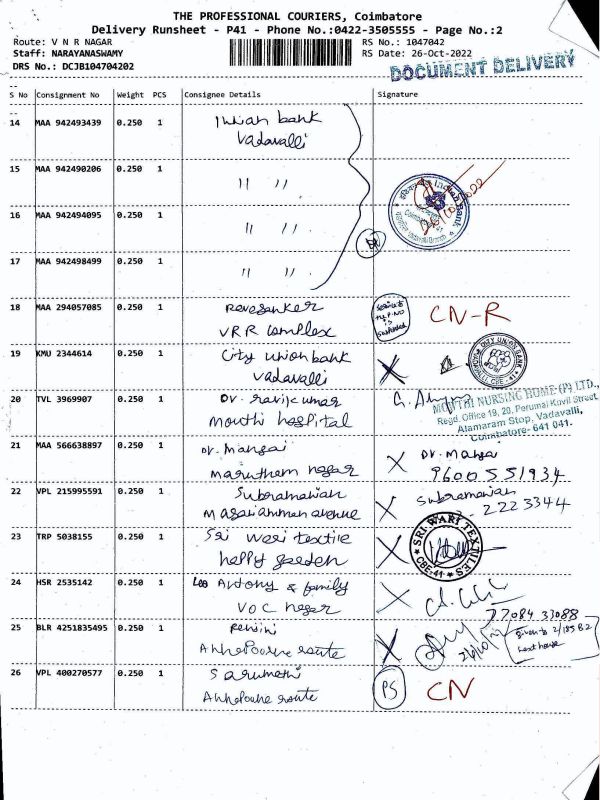 THE PROFESSIONAL COURIERS, Coimbatore
Delivery Runsheet - P41 - Phone No.:0422-3505555 - Page No.:2
Route: V N R NAGAR
RS No.: 1047042
Staff: NARAYANASWAMY
RS Date: 26-Oct-2022
DRS No.: DCJB104704202
DOCUMENT DELIVERY
S No Consignment No Weight PCS Consignee Details Signature
14 MAA 942493439 0.250 1 Indian bank
Vadavalli
15 MAA 942490206 0.250 1 " "
16 MAA 942494095 0.250 1 " "
17 MAA 942498499 0.250 1 " "
Indian Bank
18 MAA 294057085 0.250 1 Ravesanker
VRR complex
CN-R
19 KMU 2344614 0.250 1 City union bank
Vadavalli
CITY UNION BANK
20 TVL 3969907 0.250 1 Dr. ravikumar
mouthi hospital
MOUTHI NURSING HOME (P) LTD.,
Regd. Office 19, 20, Perumal Kovil Street
Alamaram Stop, Vadavalli,
Coimbatore- 641 041.
21 MAA 566638897 0.250 1 Dr. Mangai
Marutham nagar
Dr. Mangai
9600551934
22 VPL 215995591 0.250 1 Subramanian
Magaliamman avenue
Subramanian
2223344
23 TRP 5038155 0.250 1 Sri wari textile
happy garden
SRI WARI TEXTILES
CBE-41
24 HSR 2535142 0.250 1 Antony & family
VOC nagar
77084 33088
25 BLR 4251835495 0.250 1 
Annapoorna route
given to 2/185 B2
next house
26 VPL 400270577 0.250 1 Sarumathi
Annapoorna route
PS CN